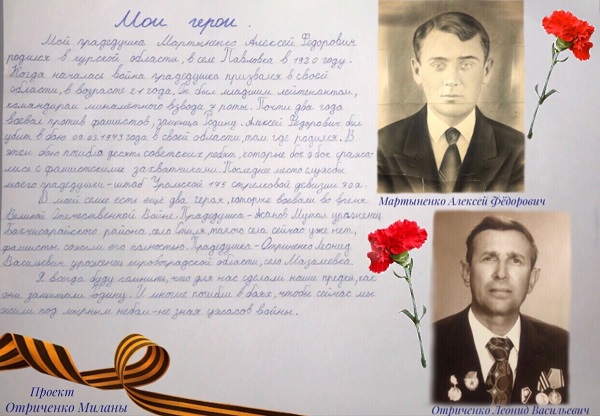 Мои герои.
Мой прадедушка Мартыненко Алексей Федорович
родился в курской области, в селе Павловка в 1920 году.
Когда началась война прадедушка призвался в своей
области, в возрасте 21 года. Он был младшим лейтенантом,
командирам миномётного взвода 7 роты. Почти два года
воевал против фашистов, защищал Родину. Алексей Федорович был
убит в бою 09.03.1943 года в своей области, там где родился. В
этом бою погибло десять советских ребят, которые бок о бок сража-
лись с фашистскими захватчиками. Последнее место службы
моего прадедушки - штаб Уральской 175 стрелковой девизии 70 а.
В моей семье есть ещё два героя, которые воевали во время
Великой Отечественной Войне. Прадедушка - Жанов уроженец
Бахчисарайского района, села такого села сейчас уже нет,
фашисты сожгли его полностью. Прадедушка - Отриченко Леонид
Васильевич уроженец кировоградской области, село Мазалевка
Я всегда буду помнить, что для нас сделали наши предки, как
они защищали родину. И многие погибли в боях, чтобы сейчас мы
жили под мирным небом - не зная ужасов войны.
Мартыненко Алексей Фёдорович
Отриченко Леонид Васильевич
Проект
Отриченко Миланы